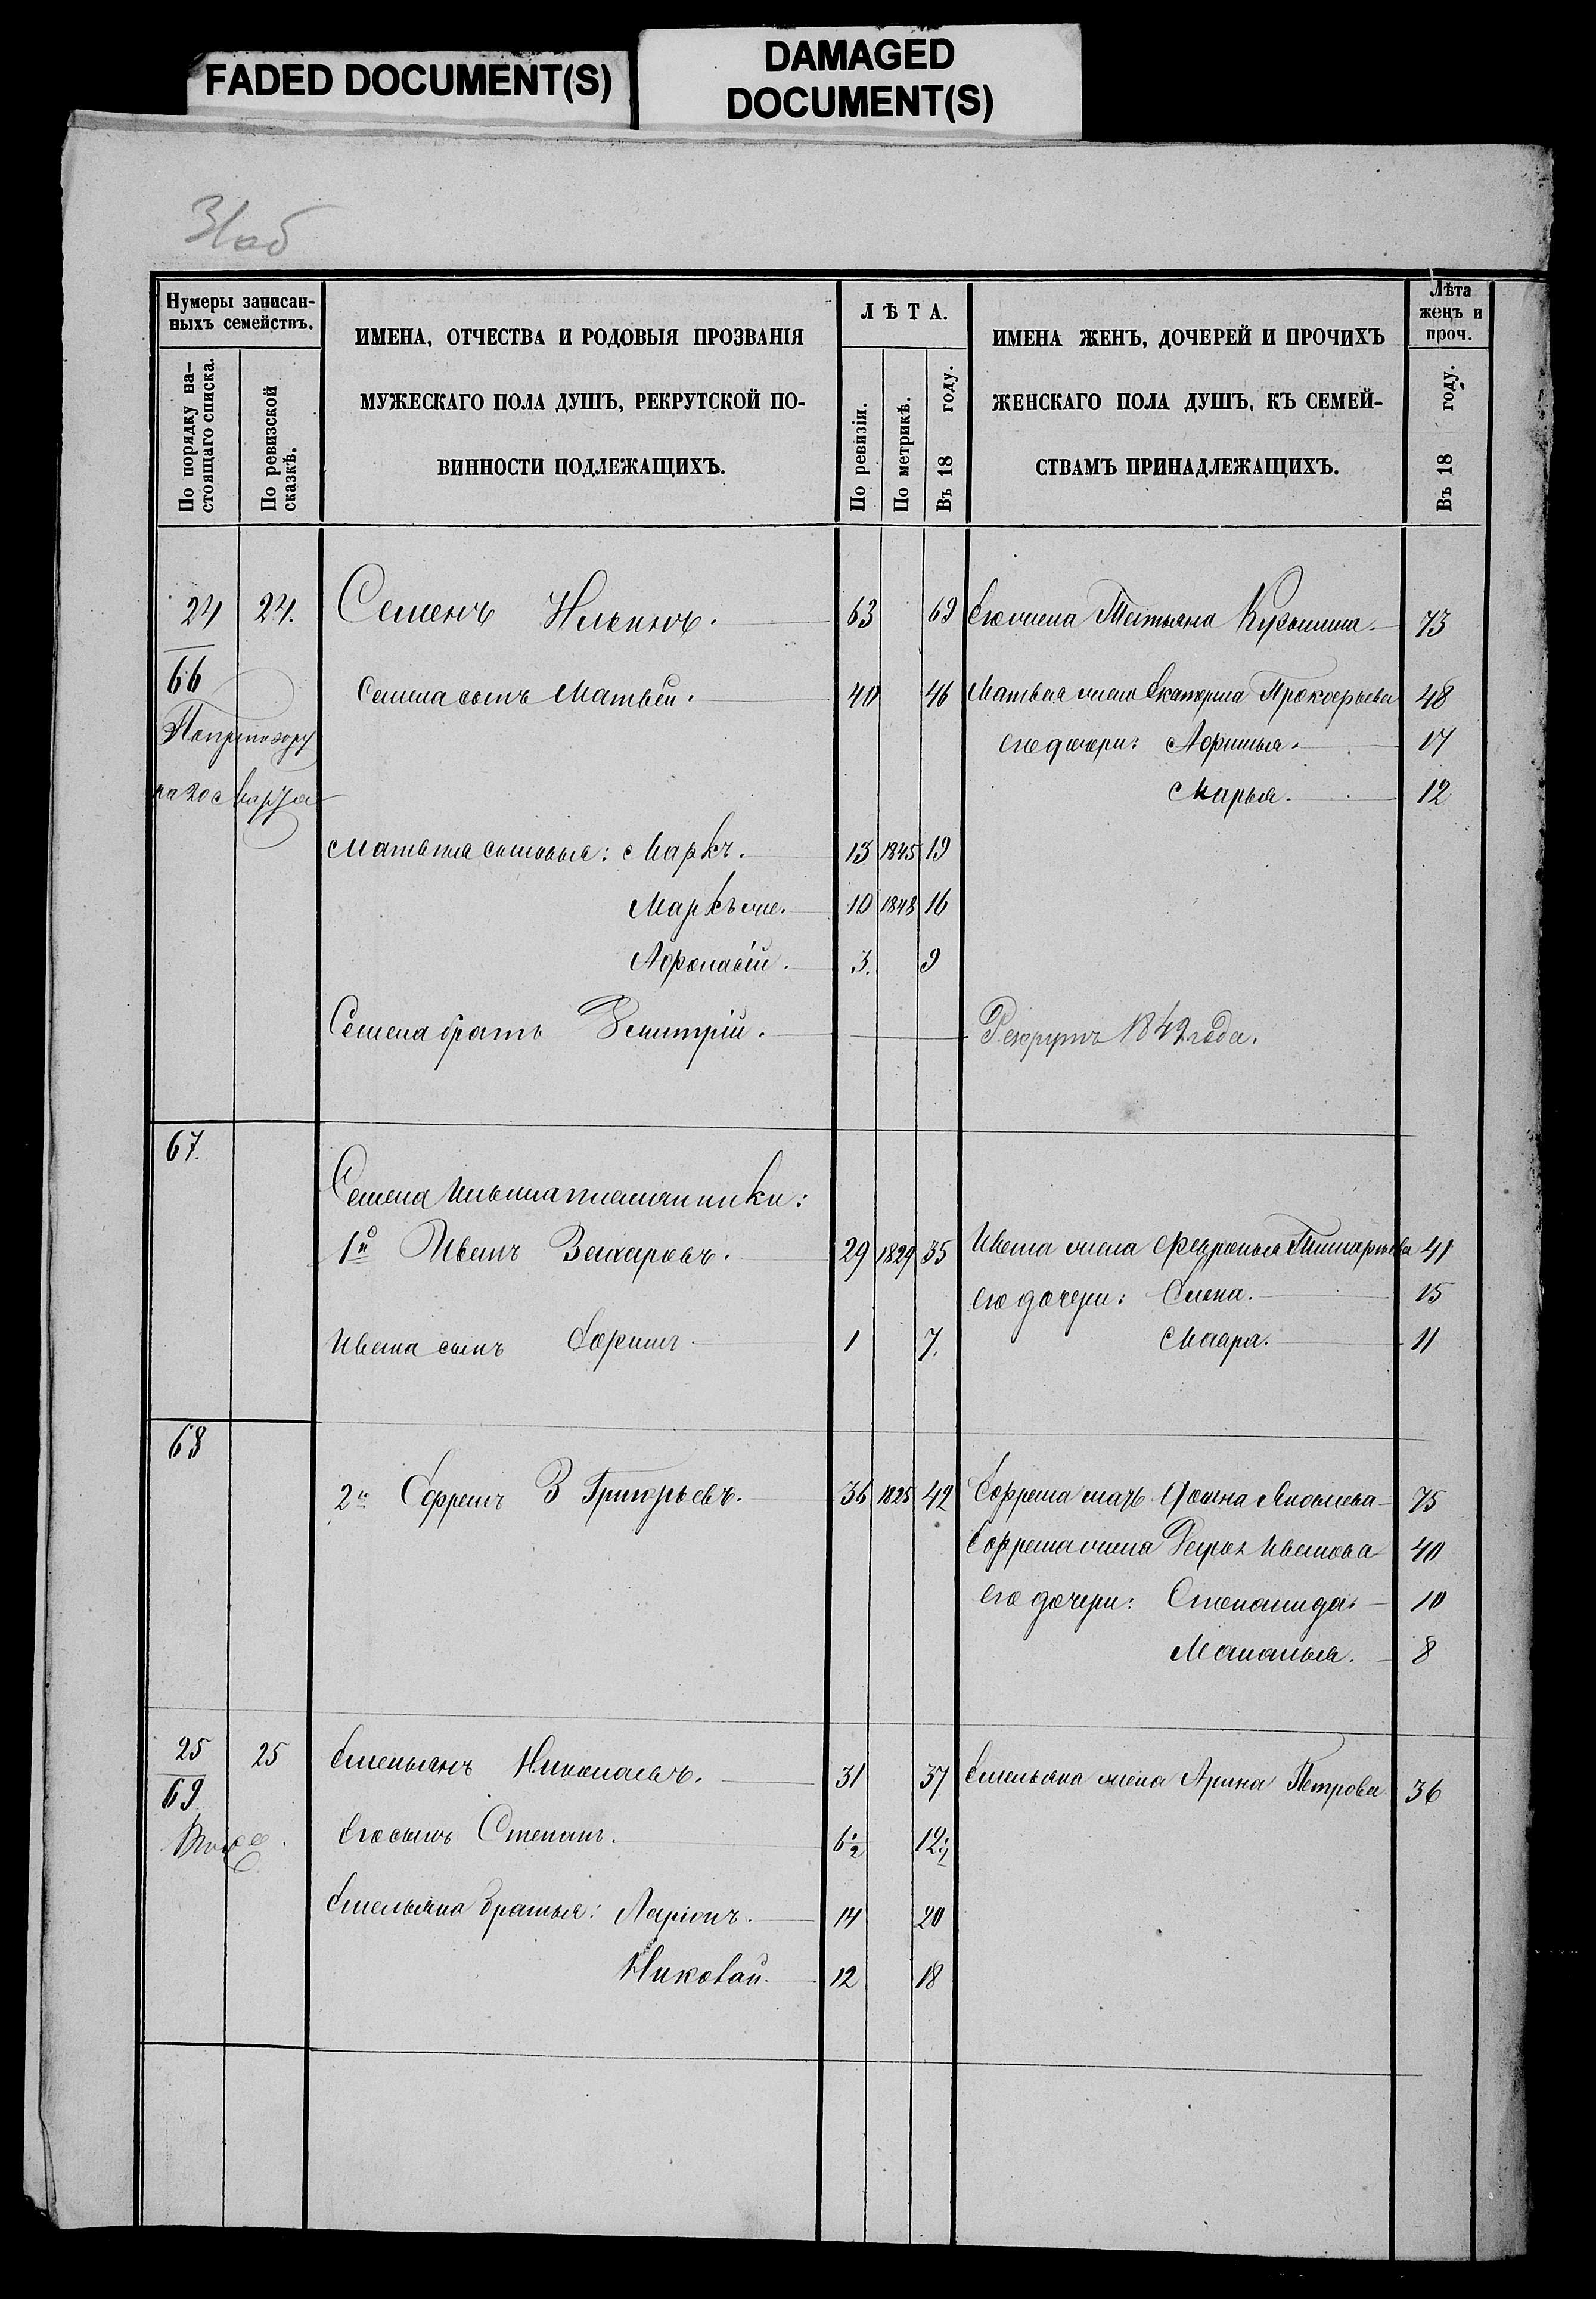 FADED DOCUMENT(S)
DAMAGED
DOCUMENT(S)
31 об
Нумеры записан-
ныхъ семействъ.
По порядку на-
стоящаго списка.
По ревизской
сказкѣ.
ИМЕНА, ОТЧЕСТВА И РОДОВЫЯ ПРОЗВАНІЯ
МУЖЕСКАГО ПОЛА ДУШЪ, РЕКРУТСКОЙ ПО-
ВИННОСТИ ПОДЛЕЖАЩИХЪ.
ЛѢТА.
По ревизіи.
По метрикѣ.
Въ 18 году.
ИМЕНА ЖЕНЪ, ДОЧЕРЕЙ И ПРОЧИХЪ
ЖЕНСКАГО ПОЛА ДУШЪ, КЪ СЕМЕЙ-
СТВАМЪ ПРИНАДЛЕЖАЩИХЪ.
Лѣта
женъ и
проч.
Въ 18 году.
24 24. Семенъ Ильинъ. 63 69 Его жена Татьяна Кузьмина. 73
66
Семена сынъ Матвей. 40 46 Матвея жена Екатерина Прокофьева 48
По приговору
его дочери: Афимья. 17
на 20 с
Марья. 12
Матвея сыновья: Маркъ. 13 1845 19
Маркъ же. 10 1848 16
Афонасій. 3. 9
Семена братъ Дмитрій. Рекрутъ 1849 года.
67.
Семена Ильина племянники:
1й Иванъ Захаровъ. 29 1829 35 Ивана жена Февронья 41
его дочери: Елена. 15
Ивана сынъ Ефимъ 1 7.
Мавра. 11
68
2й Ефремъ Григорьевъ. 36 1825 42 Ефрема мать Фомна Яковлева 75
Ефрема жена Ивановa 40
его дочери: Степанида. 10
Маланья. 8
25 25 Емельянъ Николаевъ. 31 37 Емельяна жена Арина Петрова 36
69
Его сынъ Степанъ. 6½ 12½
Емельяна братья: Ларіонъ. 14 20
Николай. 12 18